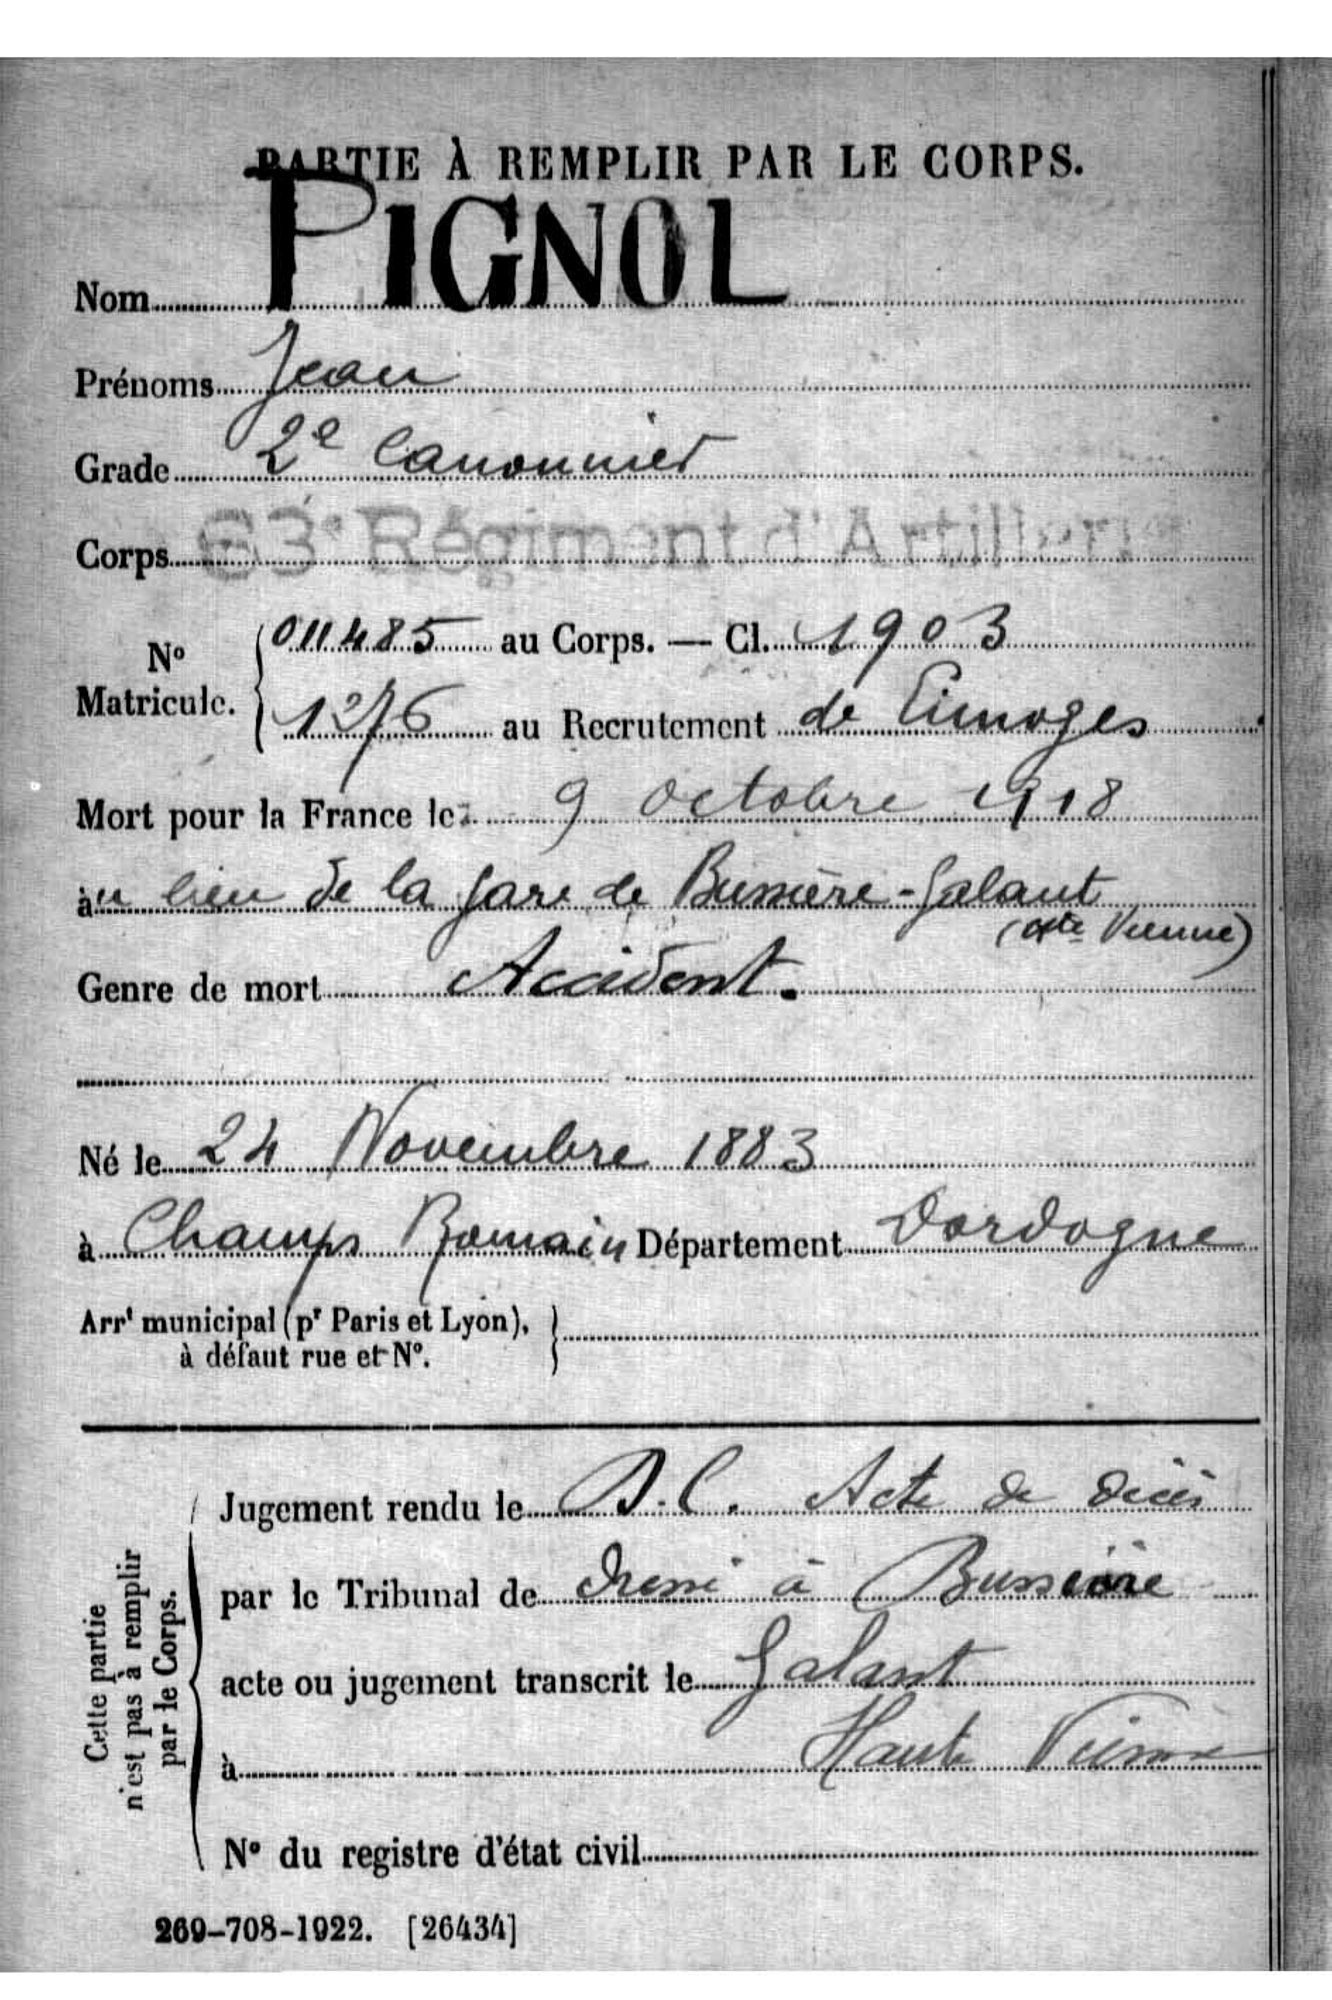 PARTIE À REMPLIR PAR LE CORPS.
Nom PIGNOL
Prénoms Jean
Grade 2e Canonnier
Corps 63e Régiment d'Artillerie
No Matricule. { 011485 au Corps. — Cl. 1903
1276 au Recrutement de Limoges
Mort pour la France le 9 Octobre 1918
àu lieu de la gare de Bussière-Galant
(Hte Vienne)
Genre de mort Accident.
Né le 24 Novembre 1883
à Champs Romain Département Dordogne
Arrt municipal (pr Paris et Lyon), }
à défaut rue et No.
Cette partie
n'est pas à remplir
par le Corps.
Jugement rendu le D.C. Acte de décès
par le Tribunal de dressé à Bussière
acte ou jugement transcrit le Galant
à Haute Vienne
No du registre d'état civil
269-708-1922. [26434]